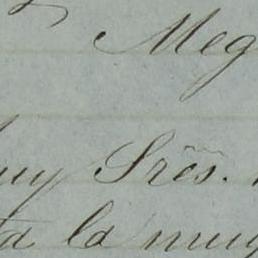 Meg
uy Sres.
ta la muy